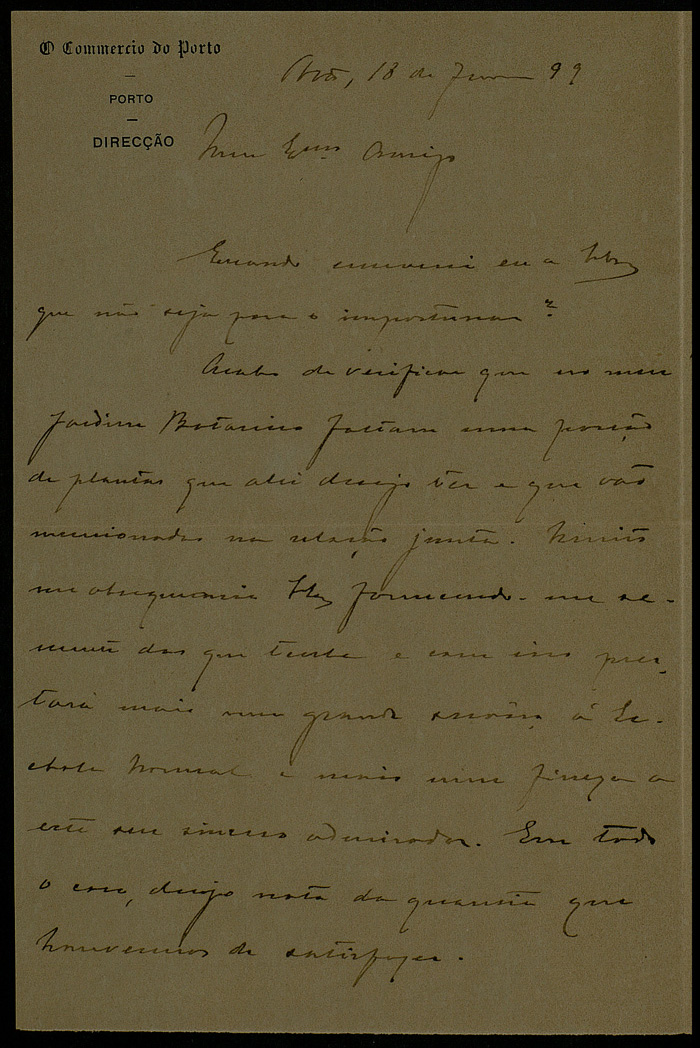 O Commercio do Porto
PORTO
DIRECÇÃO
Porto, 18 de 99
Meu Exmo. Amigo
Quando escreverei eu a V. Exa.
que não seja para o importunar?
Acabo de verificar que no meu
Jardim Botanico faltam uma porção
de plantas que ali desejo ter e que vão
mencionadas na relação junta. Muito
me obsequiaria V. Exa. fornecendo-me se-
mente das que tenha e com isso pres-
tará mais um grande serviço á Es-
chola Normal e mais uma fineza a
este seu sincero admirador. Em todo
o caso, desejo nota da quantia que
houvermos de satisfazer.